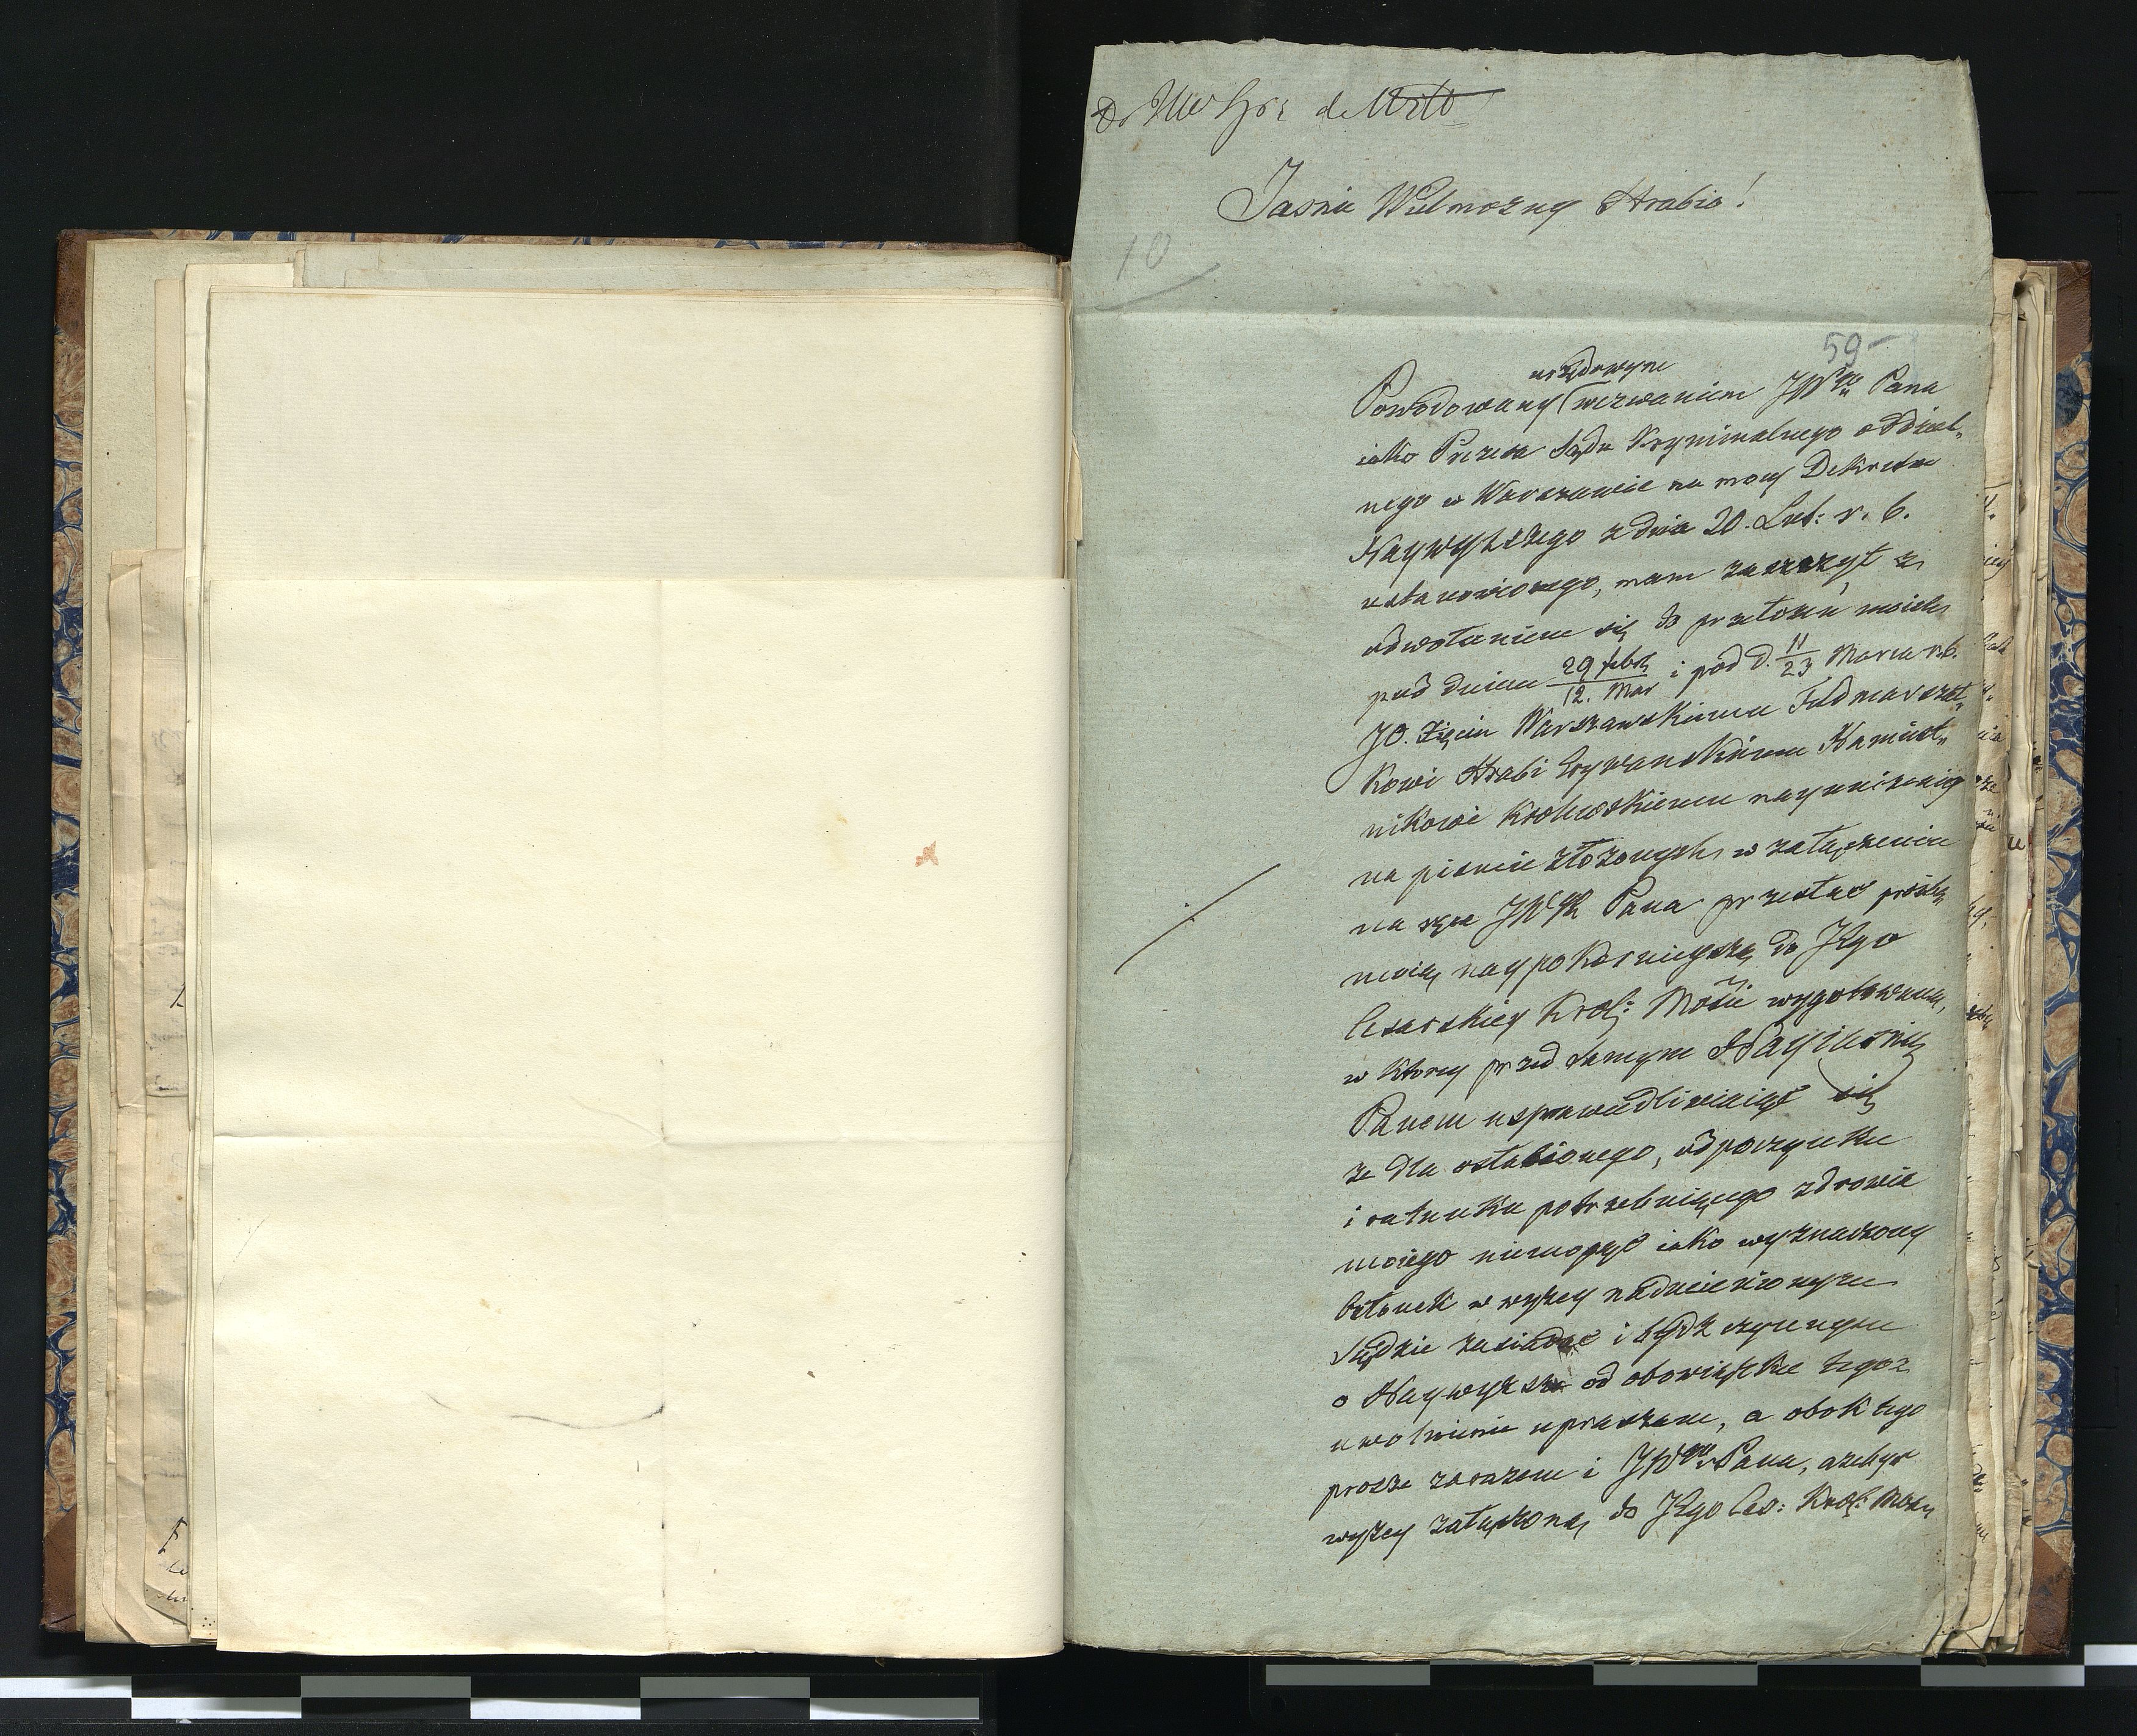 Do JWo Hr: de Witt
Jaśnie Wielmożny Hrabio!
10
59
urzędowym
Powodowany wezwaniem JWgo Pana
iako Prezesa Sądu Kryminalnego oddziel„
nego w Warszawie na mocy Dekretu
Naywyższego z dnia 20. Lut: r. b.
ustanowionego, mam zaszczyt z
odwołaniem się do przełożeń moich
pod dniem 29 febr/12. Mar i pod d. 11/23 Marca r.b.
JO. Xięciu Warszawskiemu Feldmarszał„
kowi Hrabi Erywańskiemu Namiest„
nikowi Królewskiemu nayuniżeniey
na pismie złożonych, w załączeniu
na ręce JWgo Pana przesłać prośbę
moię naypokornieyszą do Jego
Cesarskiey Król: Mości wygotowaną,
w ktorey przed samym Nayiaśniey
Panem usprawiedliwiaiąc się
że dla osłabionego, odpoczynku
i ratunku potrzebuiącego zdrowia
moiego niemogąc iako wyznaczony
Członek w wyżey nadmienionym
Sądzie zasiadać i bydź czynnym
o Naywyższe od obowiązku tegoż
uwolnienie upraszam, a obok tego
proszę zarazem i JWgo Pana, ażebyś
wyżey załączoną do Jego Ces: Król: Mości